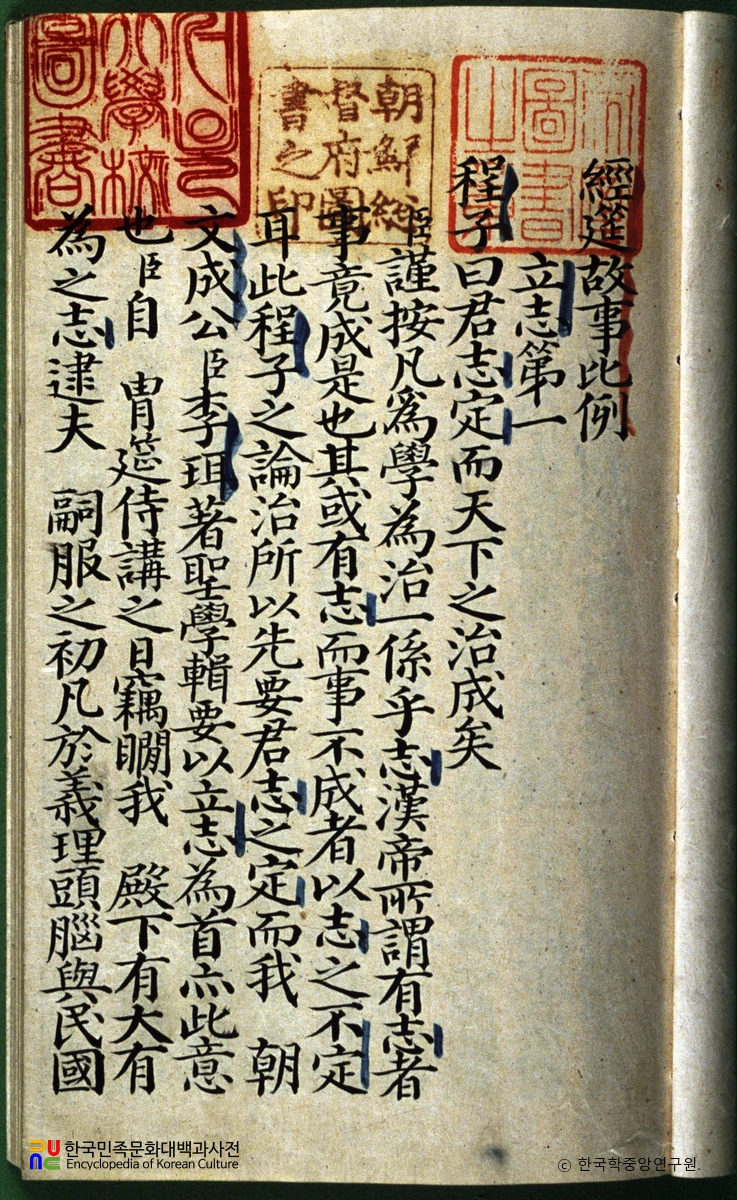 經筵故事比例
立志第一
程子曰君志定而天下之治成矣
臣謹按凡爲學為治一係乎志漢帝所謂有志者
事竟成是也其或有志而事不成者以志之不定
耳此程子之論治所以先要君志之定而我 朝
文成公臣李珥著聖學輯要以立志為首亦此意
也臣自 冑筵侍講之日竊瞯我 殿下有大有
為之志逮夫 嗣服之初凡於義理頭腦與民國
圖書
朝鮮総
督府圖
書之印
大學校
圖書
한국민족문화대백과사전
Encyclopedia of Korean Culture
ⓒ 한국학중앙연구원.